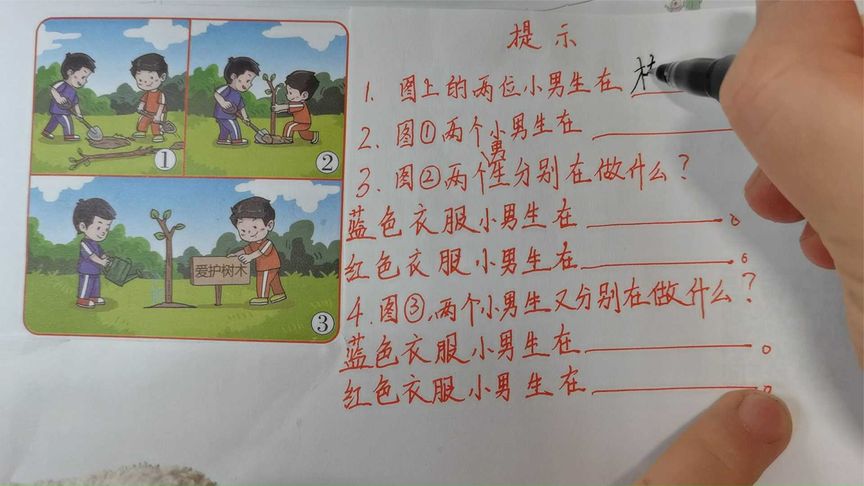 提示
1. 图上的两位小男生在
2. 图①两个小男生在
3. 图②两个男生分别在做什么?
蓝色衣服小男生在 。
红色衣服小男生在 。
4. 图③,两个小男生又分别在做什么?
蓝色衣服小男生在 。
红色衣服小男生在 。
①
②
爱护树木
③